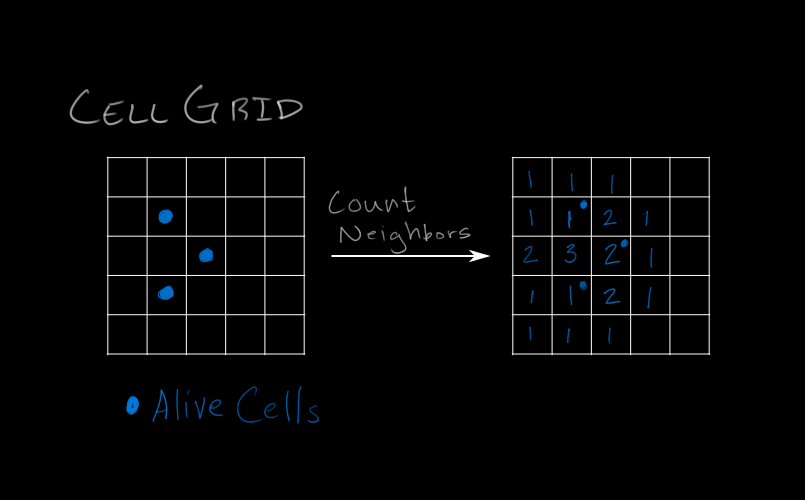 CELL GRID
Count
Neighbors
1 1 1
1 1 2 1
2 3 2 1
1 1 2 1
1 1 1
Alive Cells